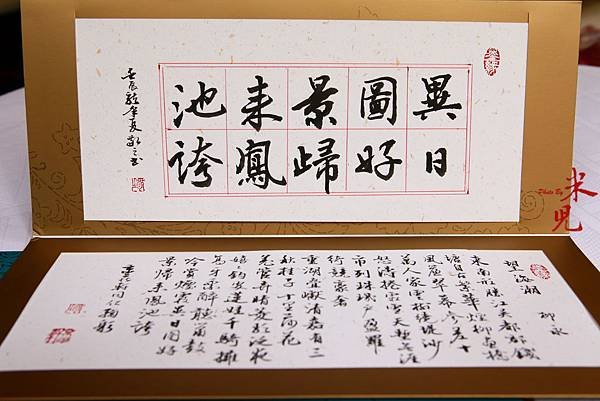 異日
圖好
景歸
來鳳
池誇
壬辰龍年夏敬之書
Photo By 米兒
望海潮 柳永
東南形勝江吳都會錢
塘自古繁華煙柳畫橋
風簾翠幕參差十
萬人家雲樹繞堤沙
怒濤捲霜雪天塹無涯
市列珠璣戶盈羅
綺競豪奢
重湖疊巘清嘉有三
秋桂子十里荷花
羌管弄晴菱歌泛夜
嬉嬉釣叟蓮娃千騎擁
高牙乘醉聽簫鼓
吟賞煙霞異日圖好
景歸來鳳池誇
同仁鞠躬